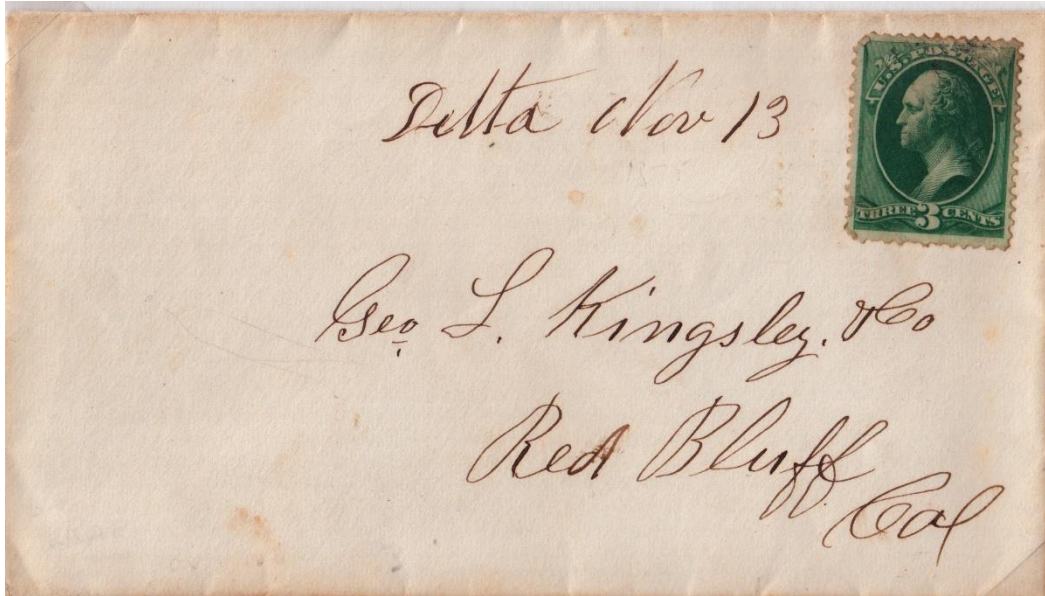 Delta Nov 13
U.S. POSTAGE
THREE 3 CENTS
Geo L. Kingsley. & Co
Red Bluff
Cal